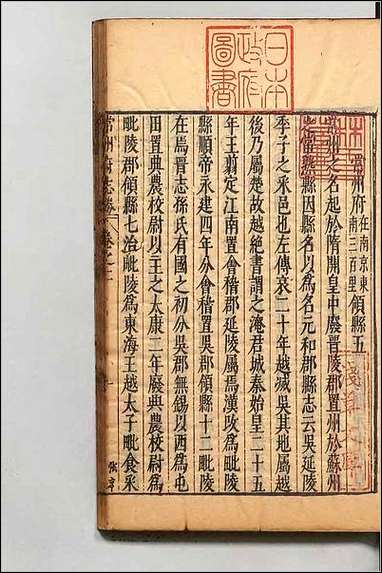 日本
政府
圖書
淺草文庫
常州府在南京東南三百里領縣五
常州之名起於隋開皇中廢晉陵郡置州於蘇州
之常熟縣因縣名以爲名元和郡縣志云吳延陵
季子之采邑也左傳哀二十年越滅吳其地屬越
後乃屬楚故越絕書謂之淹君城秦始皇二十五
年王翦定江南置會稽郡延陵屬焉漢改爲毗陵
縣順帝永建四年分會稽置吳郡領縣十二毗陵
在焉晉志孫氏有國之初分吳郡無錫以西爲屯
田置典農校尉以主之太康二年廢典農校尉爲
毗陵郡郡領縣七治毗陵爲東海王越太子毗食采
常州府志 卷之二